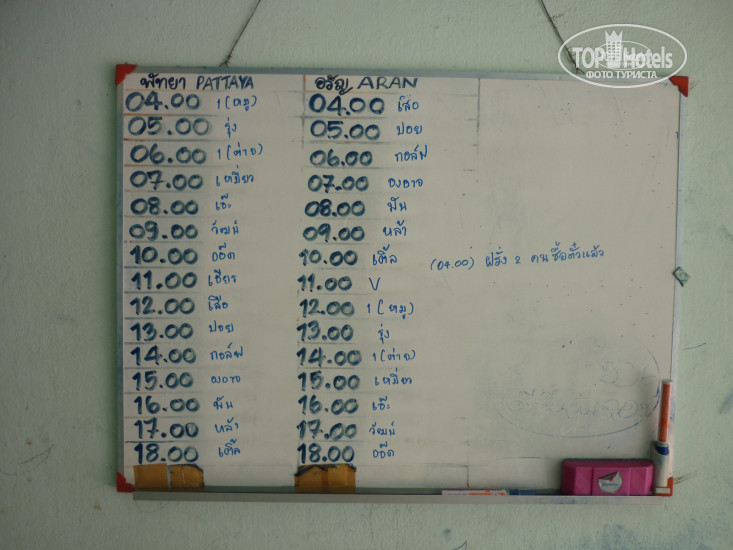 TOP Hotels
ФОТО ТУРИСТА
พัทยา PATTAYA อรัญ ARAN
04.00 1 (หมู) 04.00 เสือ
05.00 รุ่ง 05.00 ปอย
06.00 1 (ต่าย) 06.00 กอล์ฟ
07.00 เหมี่ยว 07.00 องอาจ
08.00 เอ๊ะ 08.00 พัน
09.00 วัฒน์ 09.00 หล้า
10.00 ออ๊ด 10.00 เติ้ล (04.00) ฝรั่ง 2 คนซื้อตั๋วแล้ว
11.00 11.00 V
12.00 เสือ 12.00 1 (หมู)
13.00 ปอย 13.00 รุ่ง
14.00 กอล์ฟ 14.00 1 (ต่าย)
15.00 องอาจ 15.00 เหมี่ยว
16.00 พัน 16.00 เอ๊ะ
17.00 หล้า 17.00 วัฒน์
18.00 เติ้ล 18.00 ออ๊ด